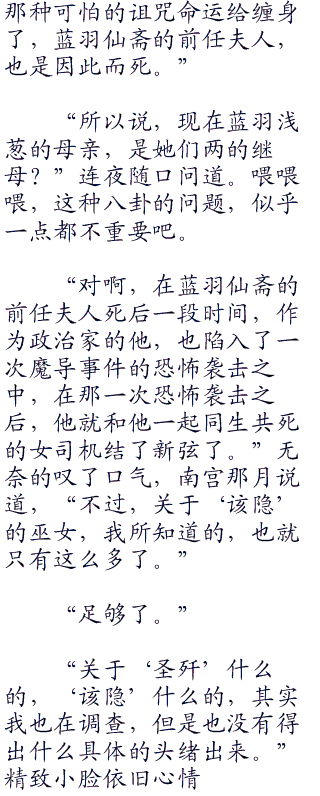 那种可怕的诅咒命运给缠身
了，蓝羽仙斋的前任夫人，
也是因此而死。”
“所以说，现在蓝羽浅
葱的母亲，是她们两的继
母？”连夜随口问道。喂喂
喂，这种八卦的问题，似乎
一点都不重要吧。
“对啊，在蓝羽仙斋的
前任夫人死后一段时间，作
为政治家的他，也陷入了一
次魔导事件的恐怖袭击之
中，在那一次恐怖袭击之
后，他就和他一起同生共死
的女司机结了新弦了。”无
奈的叹了口气，南宫那月说
道，“不过，关于‘该隐’
的巫女，我所知道的，也就
只有这么多了。”
“足够了。”
“关于‘圣歼’什么
的，‘该隐’什么的，其实
我也在调查，但是也没有得
出什么具体的头绪出来。”
精致小脸依旧心情